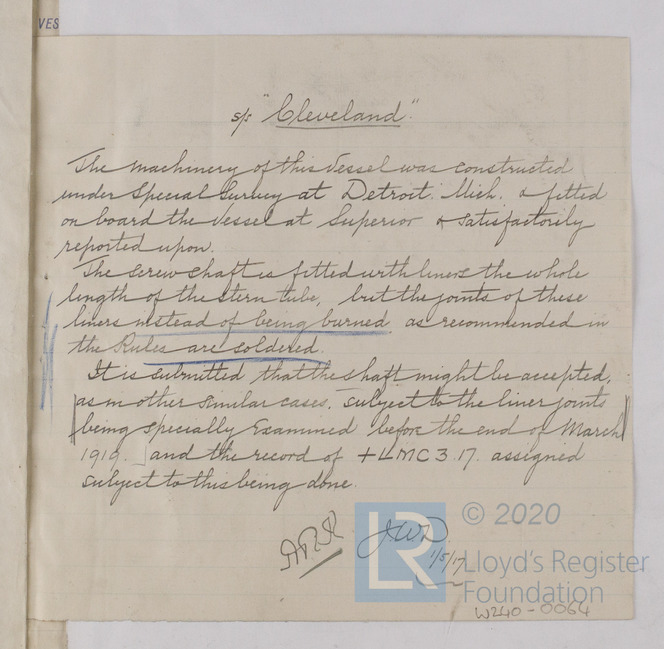 VES
s/s "Cleveland"
The machinery of this Vessel was constructed
under Special Survey at Detroit Mich. & fitted
on board the Vessel at Superior & satisfactorily
reported upon.
The screw shaft is fitted with liners the whole
length of the stern tube, but the joints of these
liners instead of being burned, as recommended in
the Rules are soldered.
It is submitted that the shaft might be accepted,
as in other similar cases, subject to the liner joints
being specially Examined before the end of March
1919. and the record of +LMC 3.17. assigned
subject to this being done.
J.W.D.
1/5/17
LR
© 2020
Lloyd's Register
Foundation
W240-0064